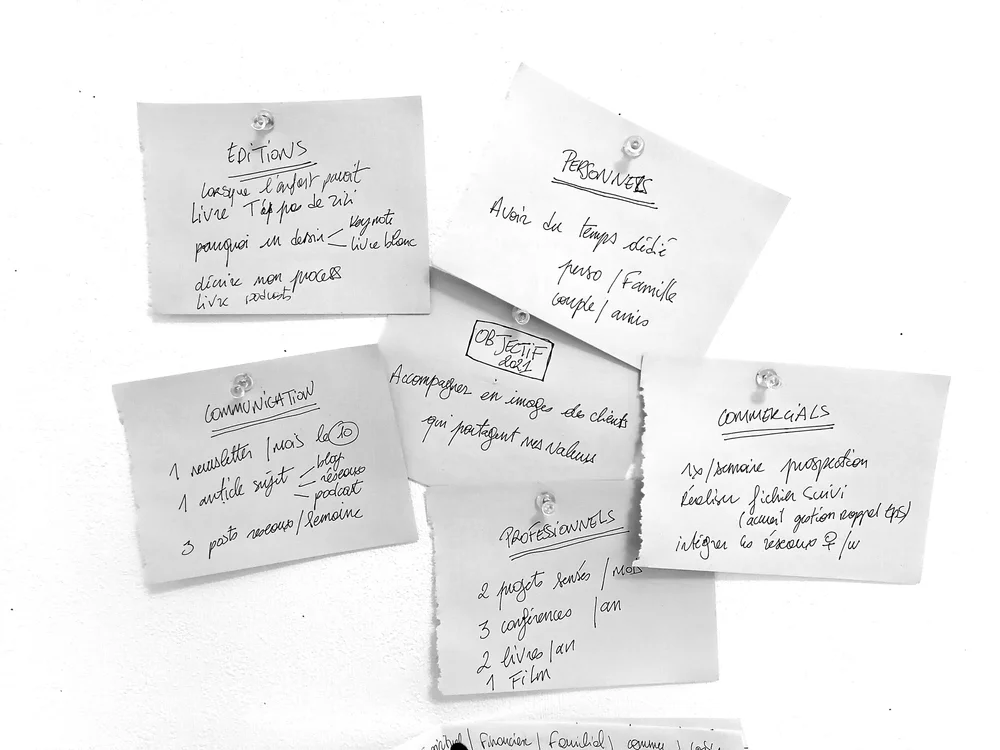 ÉDITIONS
Lorsque l'enfant paraît
Livre T'as pas de zizi
pourquoi un dessin < Keynote
livre blanc
décrire mon process
livre podcasts
PERSONNELS
Avoir du temps dédié
perso / Famille
couple / amis
OBJECTIF
2021
Accompagner en images des clients
qui partagent mes valeurs
COMMUNICATION
1 newsletter / mois le 10
1 article sujet blog
réseaux
podcast
3 posts reseaux / semaine
COMMERCIALS
1x/semaine prospection
Réaliser fichier suivi
(accueil gestion rappel tps)
intégrer les réseaux ♀ / w
PROFESIONNELS
2 projets sensés / mois
3 conférences / an
2 livres / an
1 Film
| Financier | Familial |